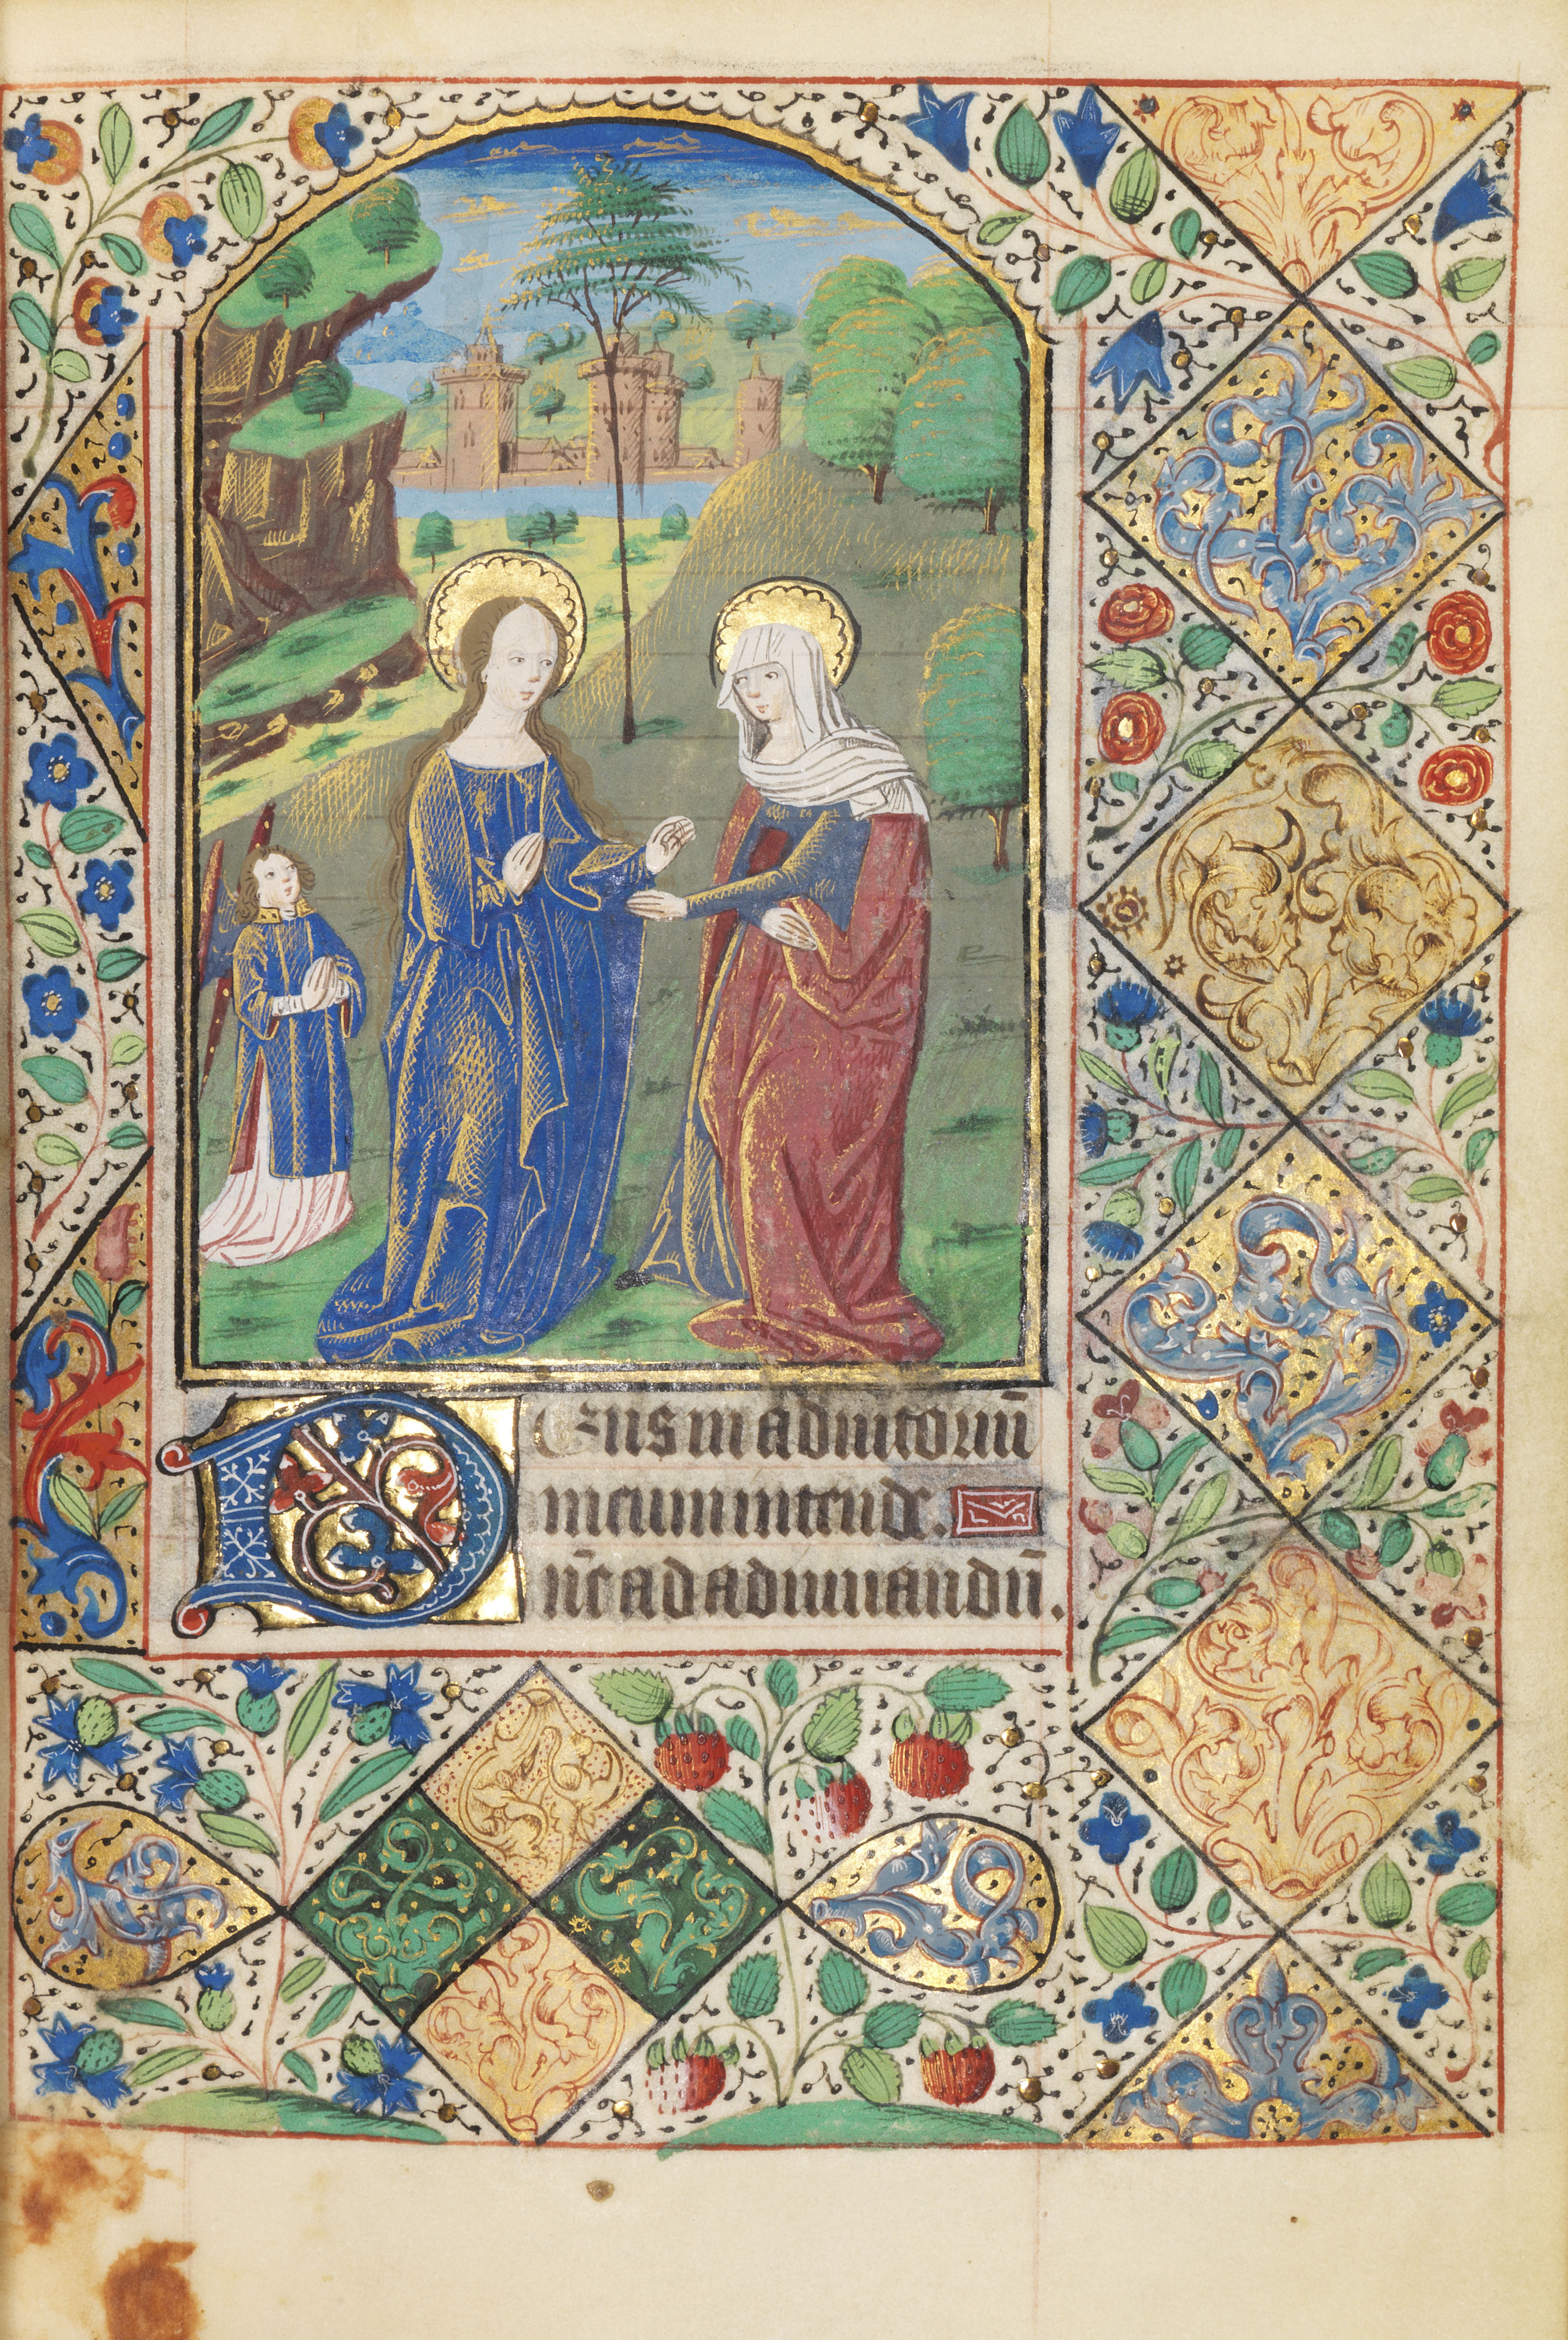 Deus in adiutoriū
meum intende.
ñe ad adiuuandū.